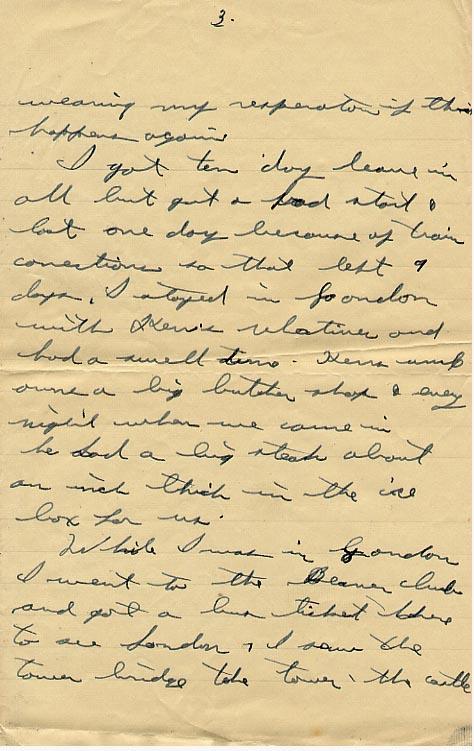 3.
wearing my resperator if this
happens again
I got ten day leave in
all but got a bad start &
lost one day because of train
conections so that left 9
days. I stayed in London
with Ken's relatives and
had a swell time. Kens unkB
owns a big butcher shop & every
night when we came in
he had a big steak about
an inch thick in the ice
box for us.
While I was in London
I went to the Beaver club
and got a bus ticket there
to see London, I saw the
tower bridge the tower, the castle